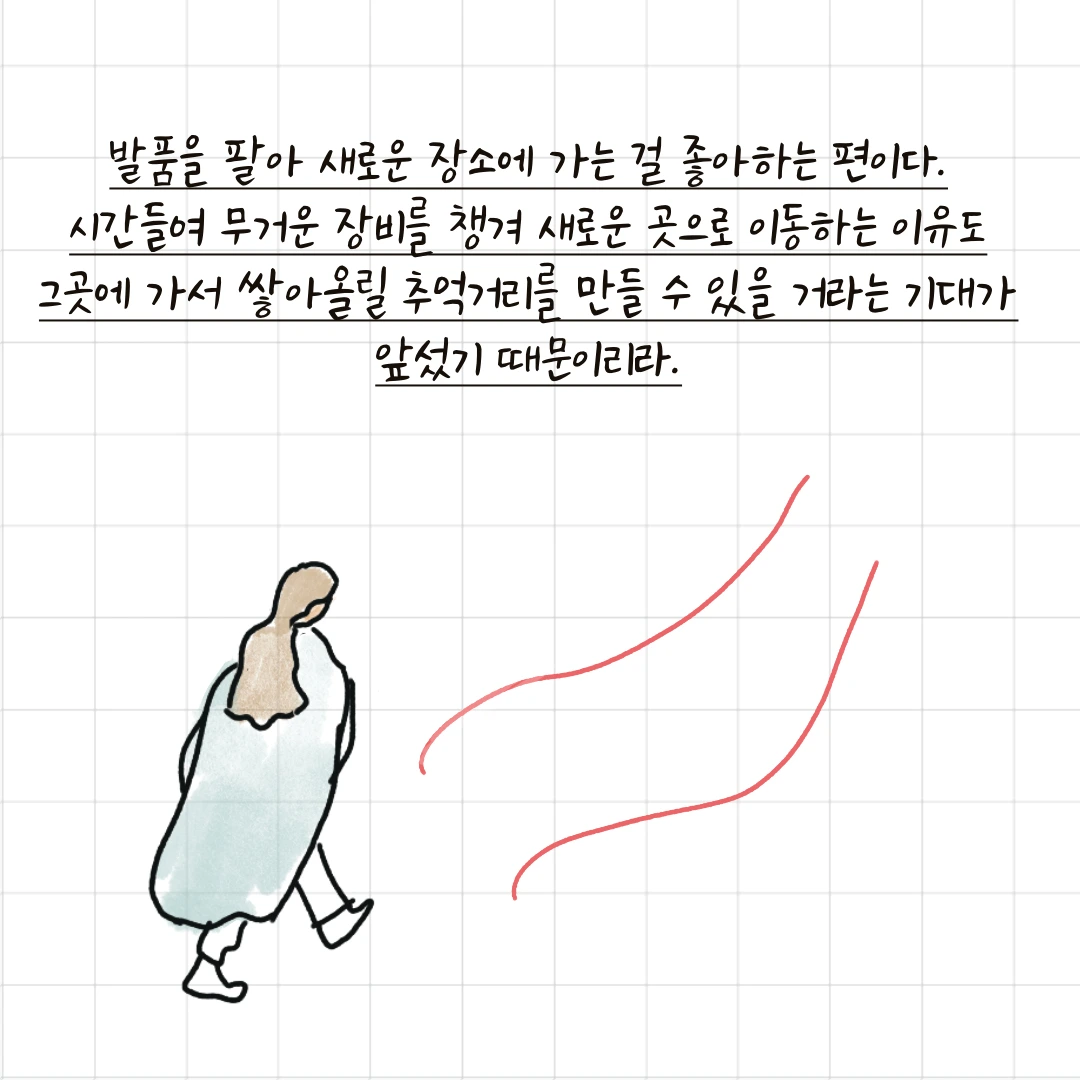 발품을 팔아 새로운 장소에 가는 걸 좋아하는 편이다.
시간들여 무거운 장비를 챙겨 새로운 곳으로 이동하는 이유도
그곳에 가서 쌓아올릴 추억거리를 만들 수 있을 거라는 기대가
앞섰기 때문이리라.